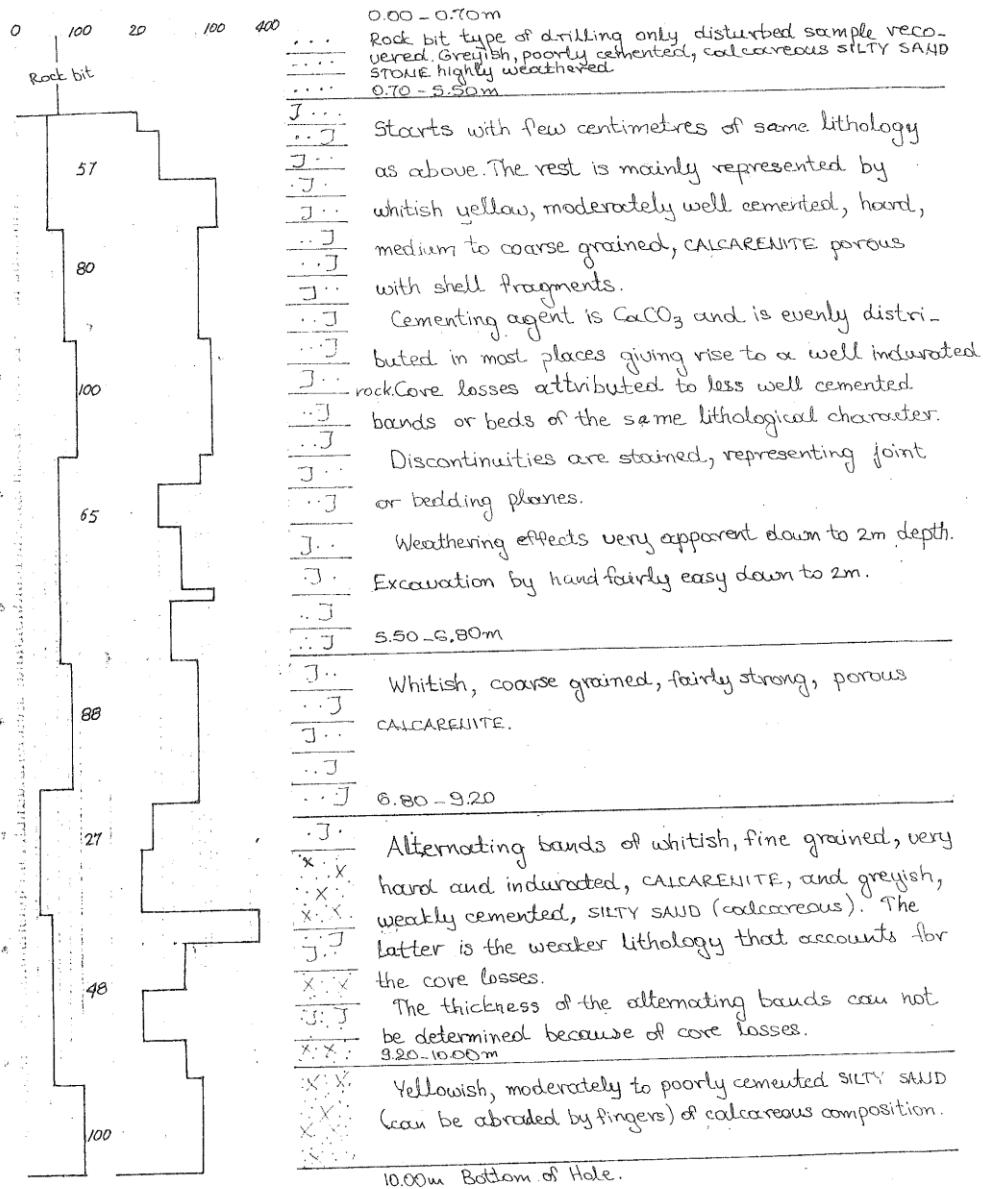 0 100 20 100 400
Rock bit
57
80
100
65
88
27
48
100
0.00 - 0.70m
Rock bit type of drilling only disturbed sample reco-
vered. Greyish, poorly cemented, calcareous SILTY SAND
STONE highly weathered
0.70 - 5.50m
Starts with few centimetres of same lithology
as above. The rest is mainly represented by
whitish yellow, moderately well cemented, hard,
medium to coarse grained, CALCARENITE porous
with shell fragments.
Cementing agent is CaCO3 and is evenly distri-
buted in most places giving rise to a well indurated
rock. Core losses attributed to less well cemented
bands or beds of the same lithological character.
Discontinuities are stained, representing joint
or bedding planes.
Weathering effects very apparent down to 2m depth.
Excavation by hand fairly easy down to 2m.
5.50 - 6.80m
Whitish, coarse grained, fairly strong, porous
CALCARENITE.
6.80 - 9.20
Alternating bands of whitish, fine grained, very
hard and indurated, CALCARENITE, and greyish,
weakly cemented, SILTY SAND (calcareous). The
latter is the weaker lithology that accounts for
the core losses.
The thickness of the alternating bands can not
be determined because of core losses.
9.20 - 10.00m
Yellowish, moderately to poorly cemented SILTY SAND
(can be abraded by fingers) of calcareous composition.
10.00m Bottom of Hole.